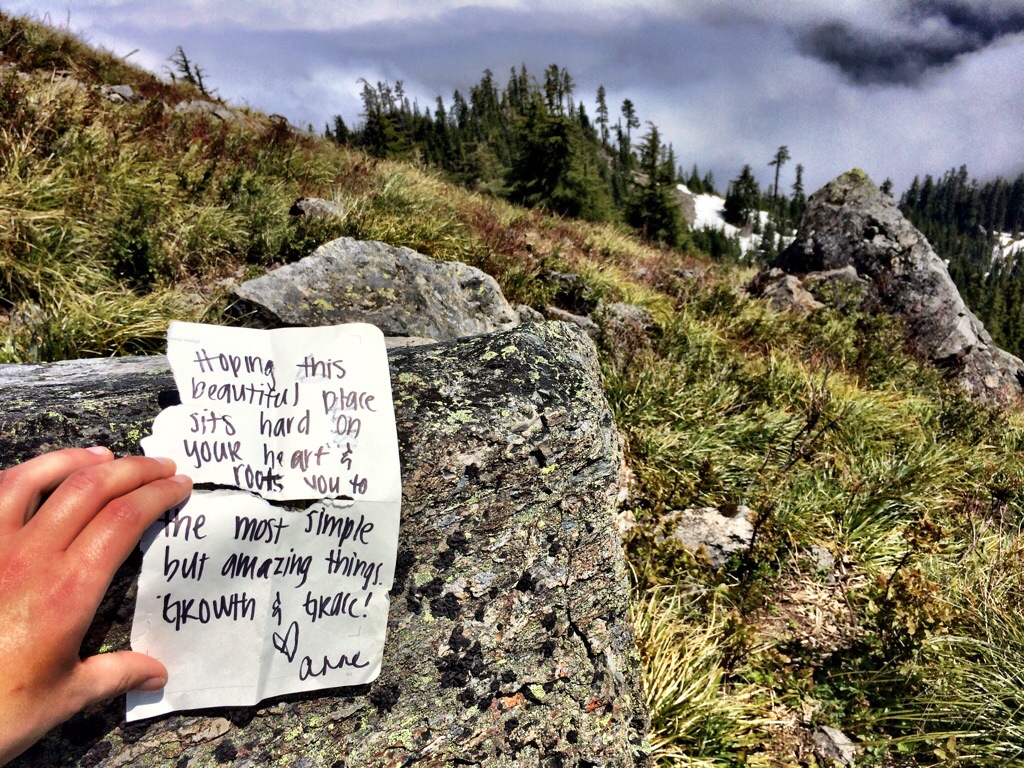 Hoping this
beautiful place
sits hard on
your heart &
roots you to
the most simple
but amazing things.
Growth & Grace!
♡ anne